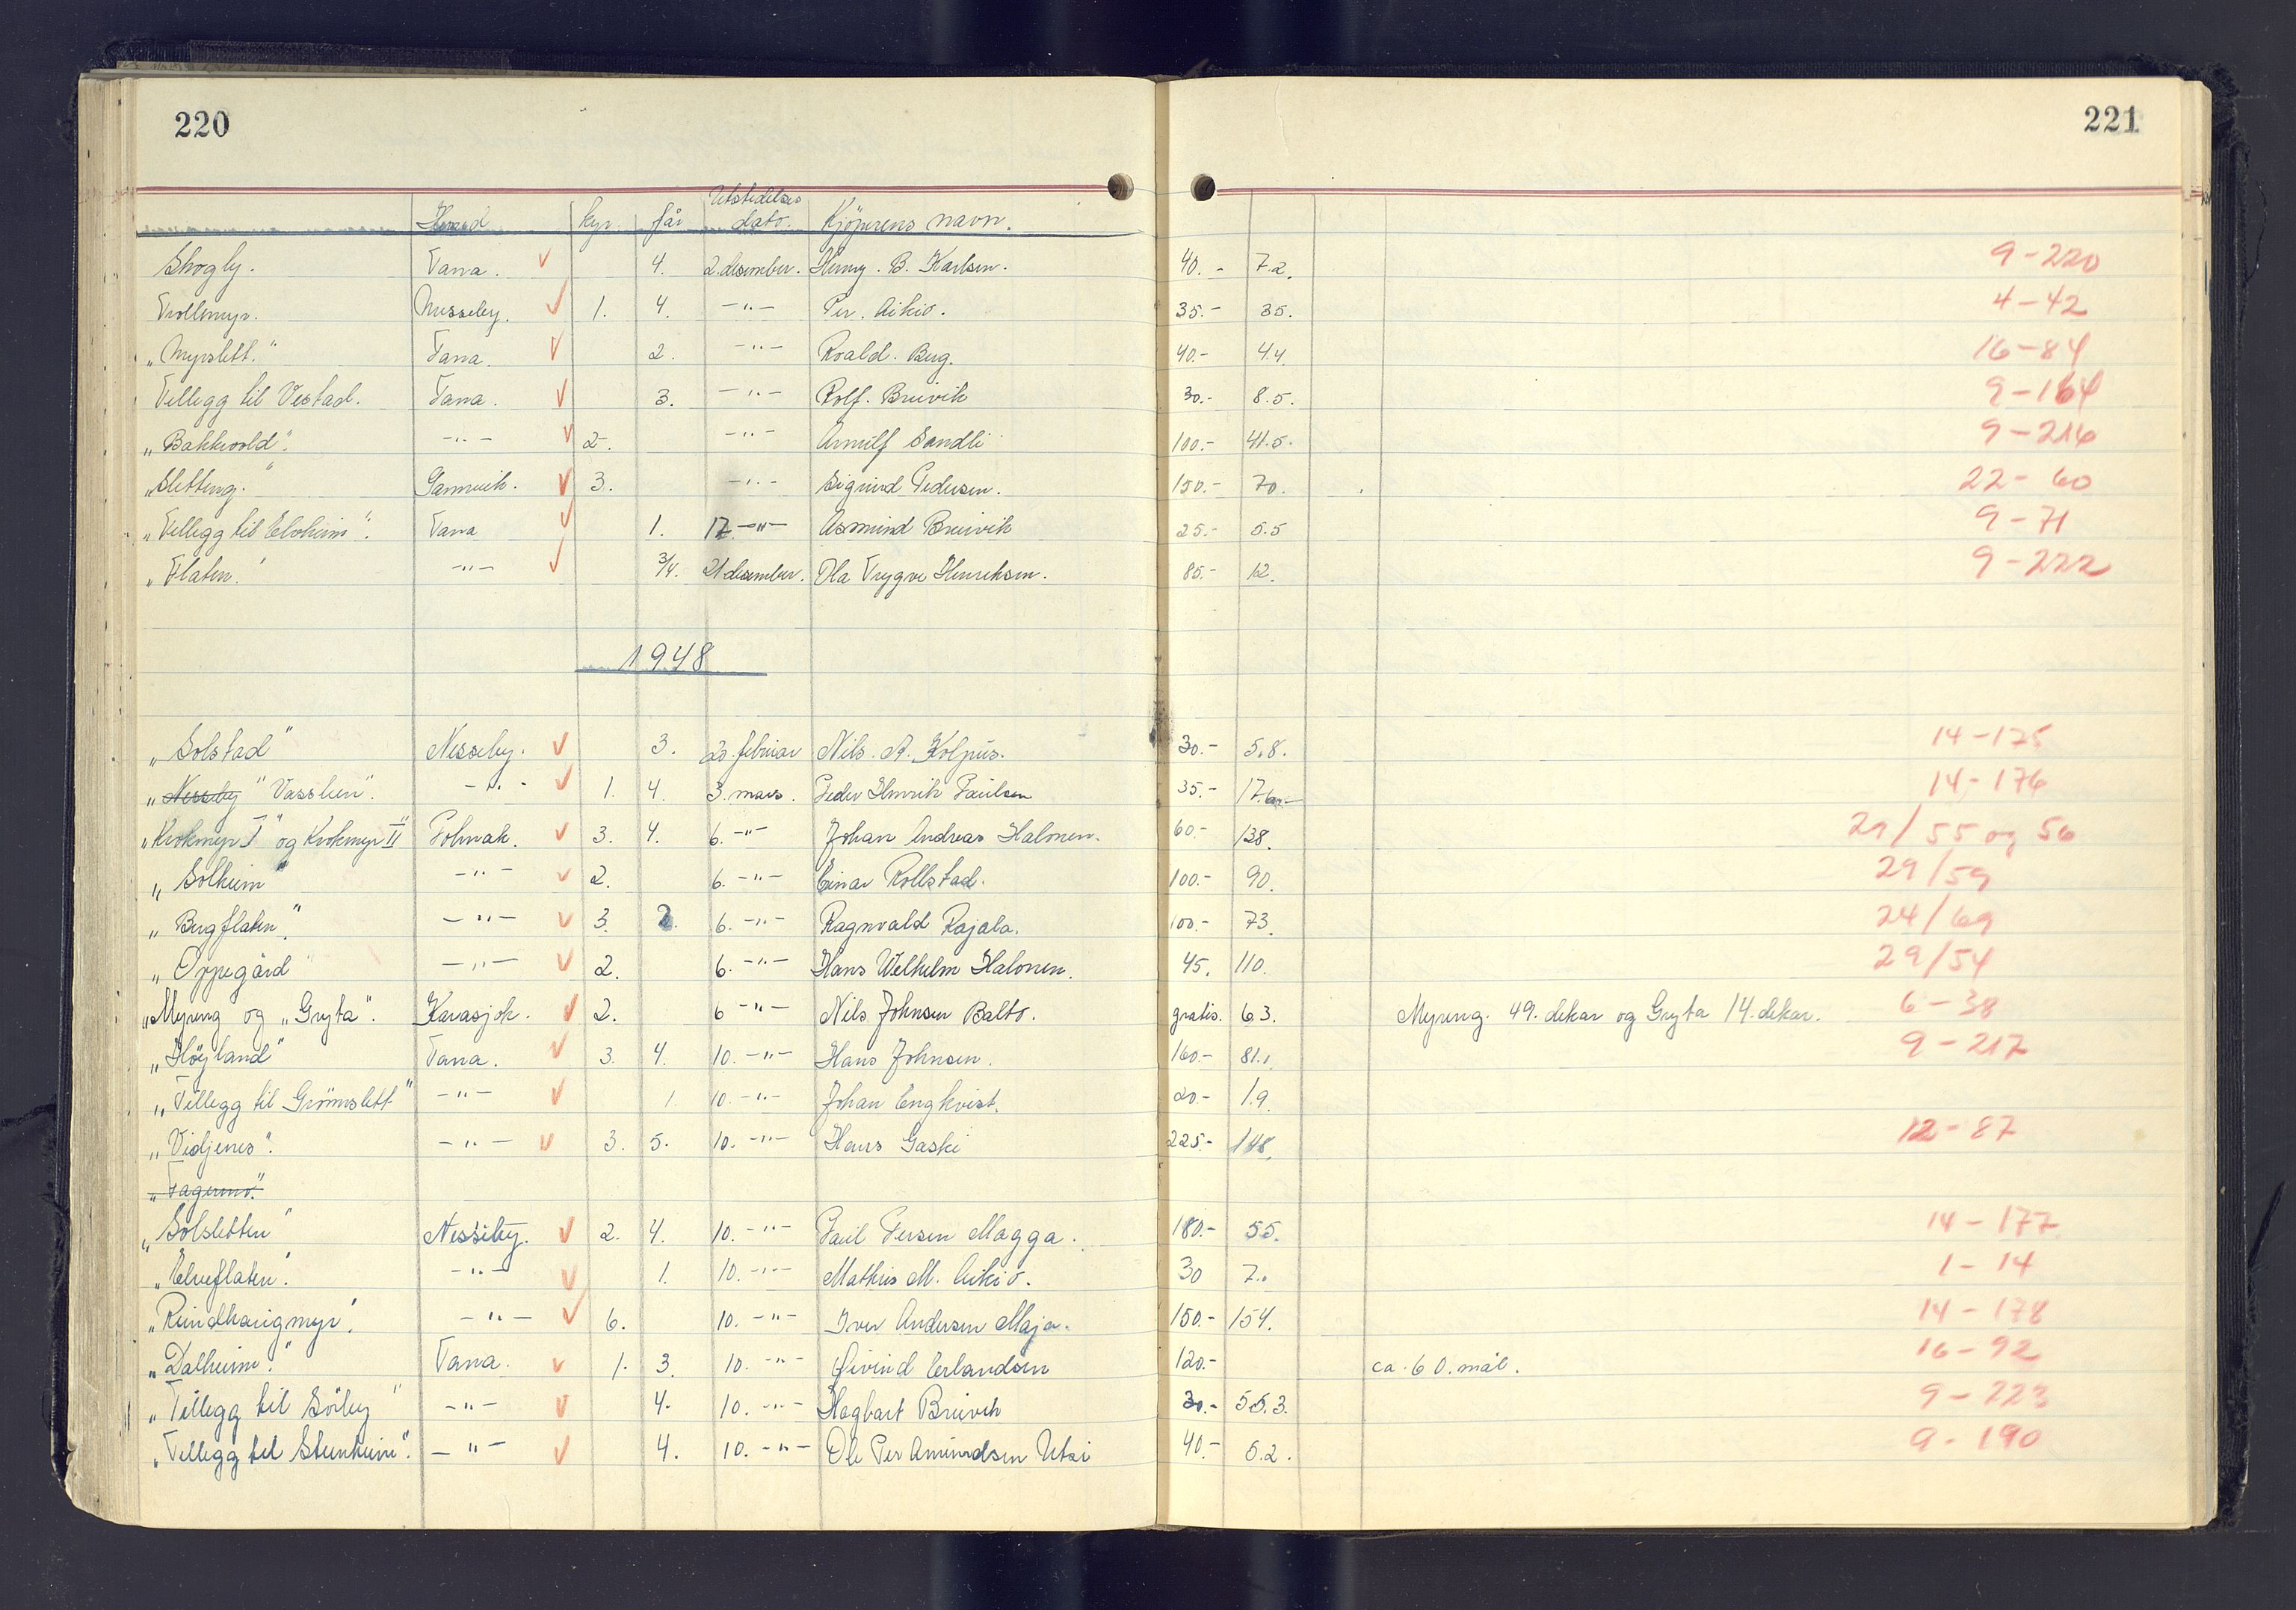 220
221
Herred kyr. får Utstedelses dato. Kjöperens navn.
Skogly. Tana. 4. 2. desember. Henny. B. Karlsen. 40.- 7.2. 9-220
Trollmyr. Nesseby. 1. 4. -"- Per. Aikio. 35.- 35. 4-42
"Myrslett." Tana. 2. -"- Roald. Berg. 40.- 4.4. 16-84
Tillegg til Vestad. Tana. 3. -"- Rolf. Breivik 30.- 8.5. 9-164
"Bakkvold". -"- 2. -"- Arnulf Sandli 100.- 41.5. 9-216
"Sletteng." Gamvik. 3. -"- Sigrund Pedersen. 150.- 70. 22-60
"Tillegg til Elvheim". Tana 1. 17. -"- Asmund Breivik 25.- 5.5 9-71
"Flaten." -"- 3/4. 21 desember. Ola Trygve Henriksen. 85.- 12. 9-222
1948
"Solstad" Nesseby. 3. 20. februar Nils. A. Kolpus. 30.- 5.8. 14-175
"Nesseby" Vasslien". -"- 1. 4. 3. mars. Peder Henrik Paulsen 35.- 14-176
"Krokmyr I" og Krokmyr II" Polmak. 3. 4. 6. -"- Johan Andreas Halonen. 60.- 138. 29/55 og 56
"Solheim" -"- 2. 6. -"- Einar Rollstad. 100.- 90. 29/59
"Bergflaten". -"- 3. 2. 6. -"- Ragnvald Rajala. 100.- 73. 24/69
"Oppegård -"- 2. 6. -"- Hans Wilhelm Halonen. 45. 110. 29/54
"Myreng og "Gryta". Karasjok. 2. 6 -"- Nils Johnsen Balto. gratis. 63. Myreng. 49. dekar og Gryta 14. dekar. 6-38
"Höyland" Tana. 3. 4. 10. -"- Hans Johnsen. 160.- 81., 9-217
"Tillegg til Grönnslett" -"- 1. 10. -"- Johan Engkvist. 20.- 1.9.
"Vidjenes". -"- 3. 5. 10. -"- Hans Gaski 225.- 148. 12-87
"Fagermo."
"Solsletten" Nesseby. 2. 4. 10. -"- Paul Persen Magga. 180.- 55. 14-177
"Elveflaten". -"- 1. 10. -"- Mathis M. Aikio. 30 7.. 1-14
"Reindhaugmyr". -"- 6. 10. -"- Iver Andersen Maja. 150.- 154. 14-178
"Dalheim." Tana. 1. 3. 10. -"- Øivind Erlandsen 120.- ca. 60. mål. 16-92
"Tillegg til Sörby" -"- 4. 10. -"- Hagbart Breivik 30.- 55.3. 9-223
"Tillegg til Stenheim". -"- 4. 10. -"- Ole Per Amundsen Utsi 40.- 5.2. 9-190